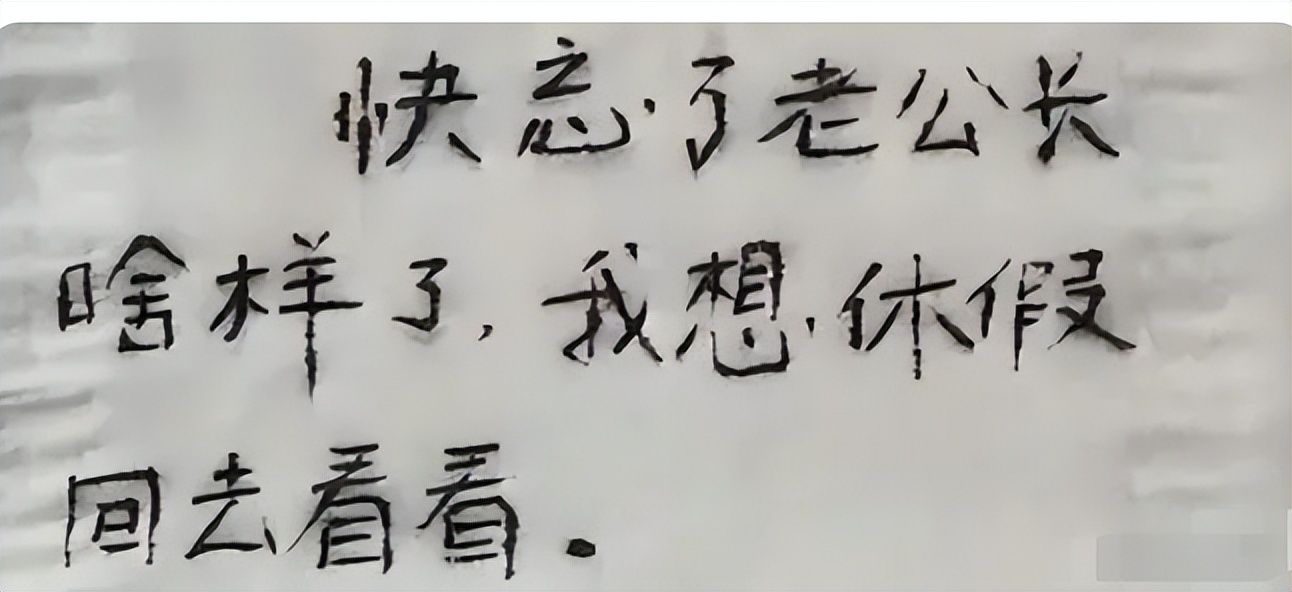 快忘了老公长
啥样了,我想休假
回去看看.